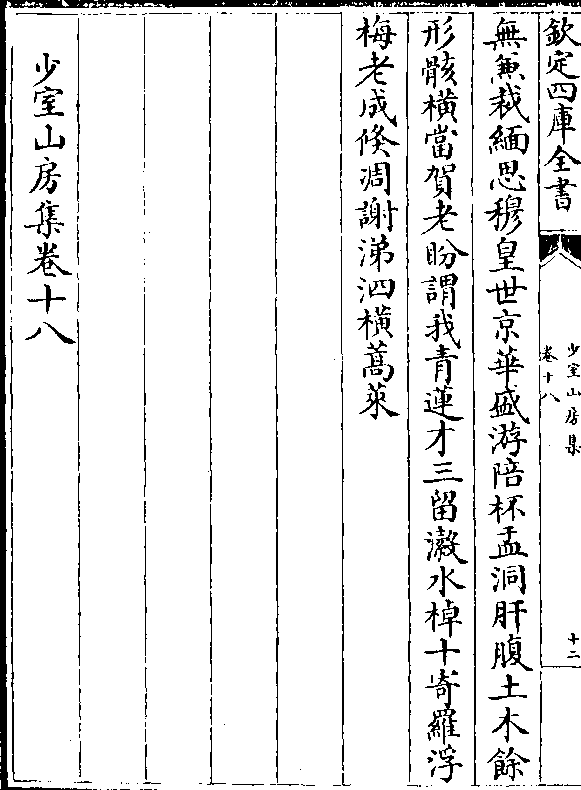 欽定四庫全書
少室山房集
卷十八
十二
無兼裁緬思穆皇世京華盛游陪杯盂洞肝腹土木餘
形骸橫當賀老盼謂我青蓮才三留瀫水棹十寄羅浮
梅老成倐凋謝涕泗橫蒿萊
少室山房集卷十八